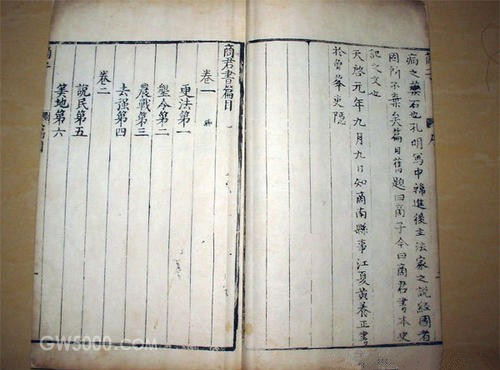 病之藥石也孔明寫申韓進後主法家之說經國者
固所不棄矣篇目舊題曰商子今曰商君書本史
記之文也
天啓元年九月九日知商南縣事江夏黃養正書
於魯峯吏隱
商君書篇目
卷一
更法第一
墾令第二
農戰第三
去强第四
卷二
說民第五
筭地第六
GW5000.com